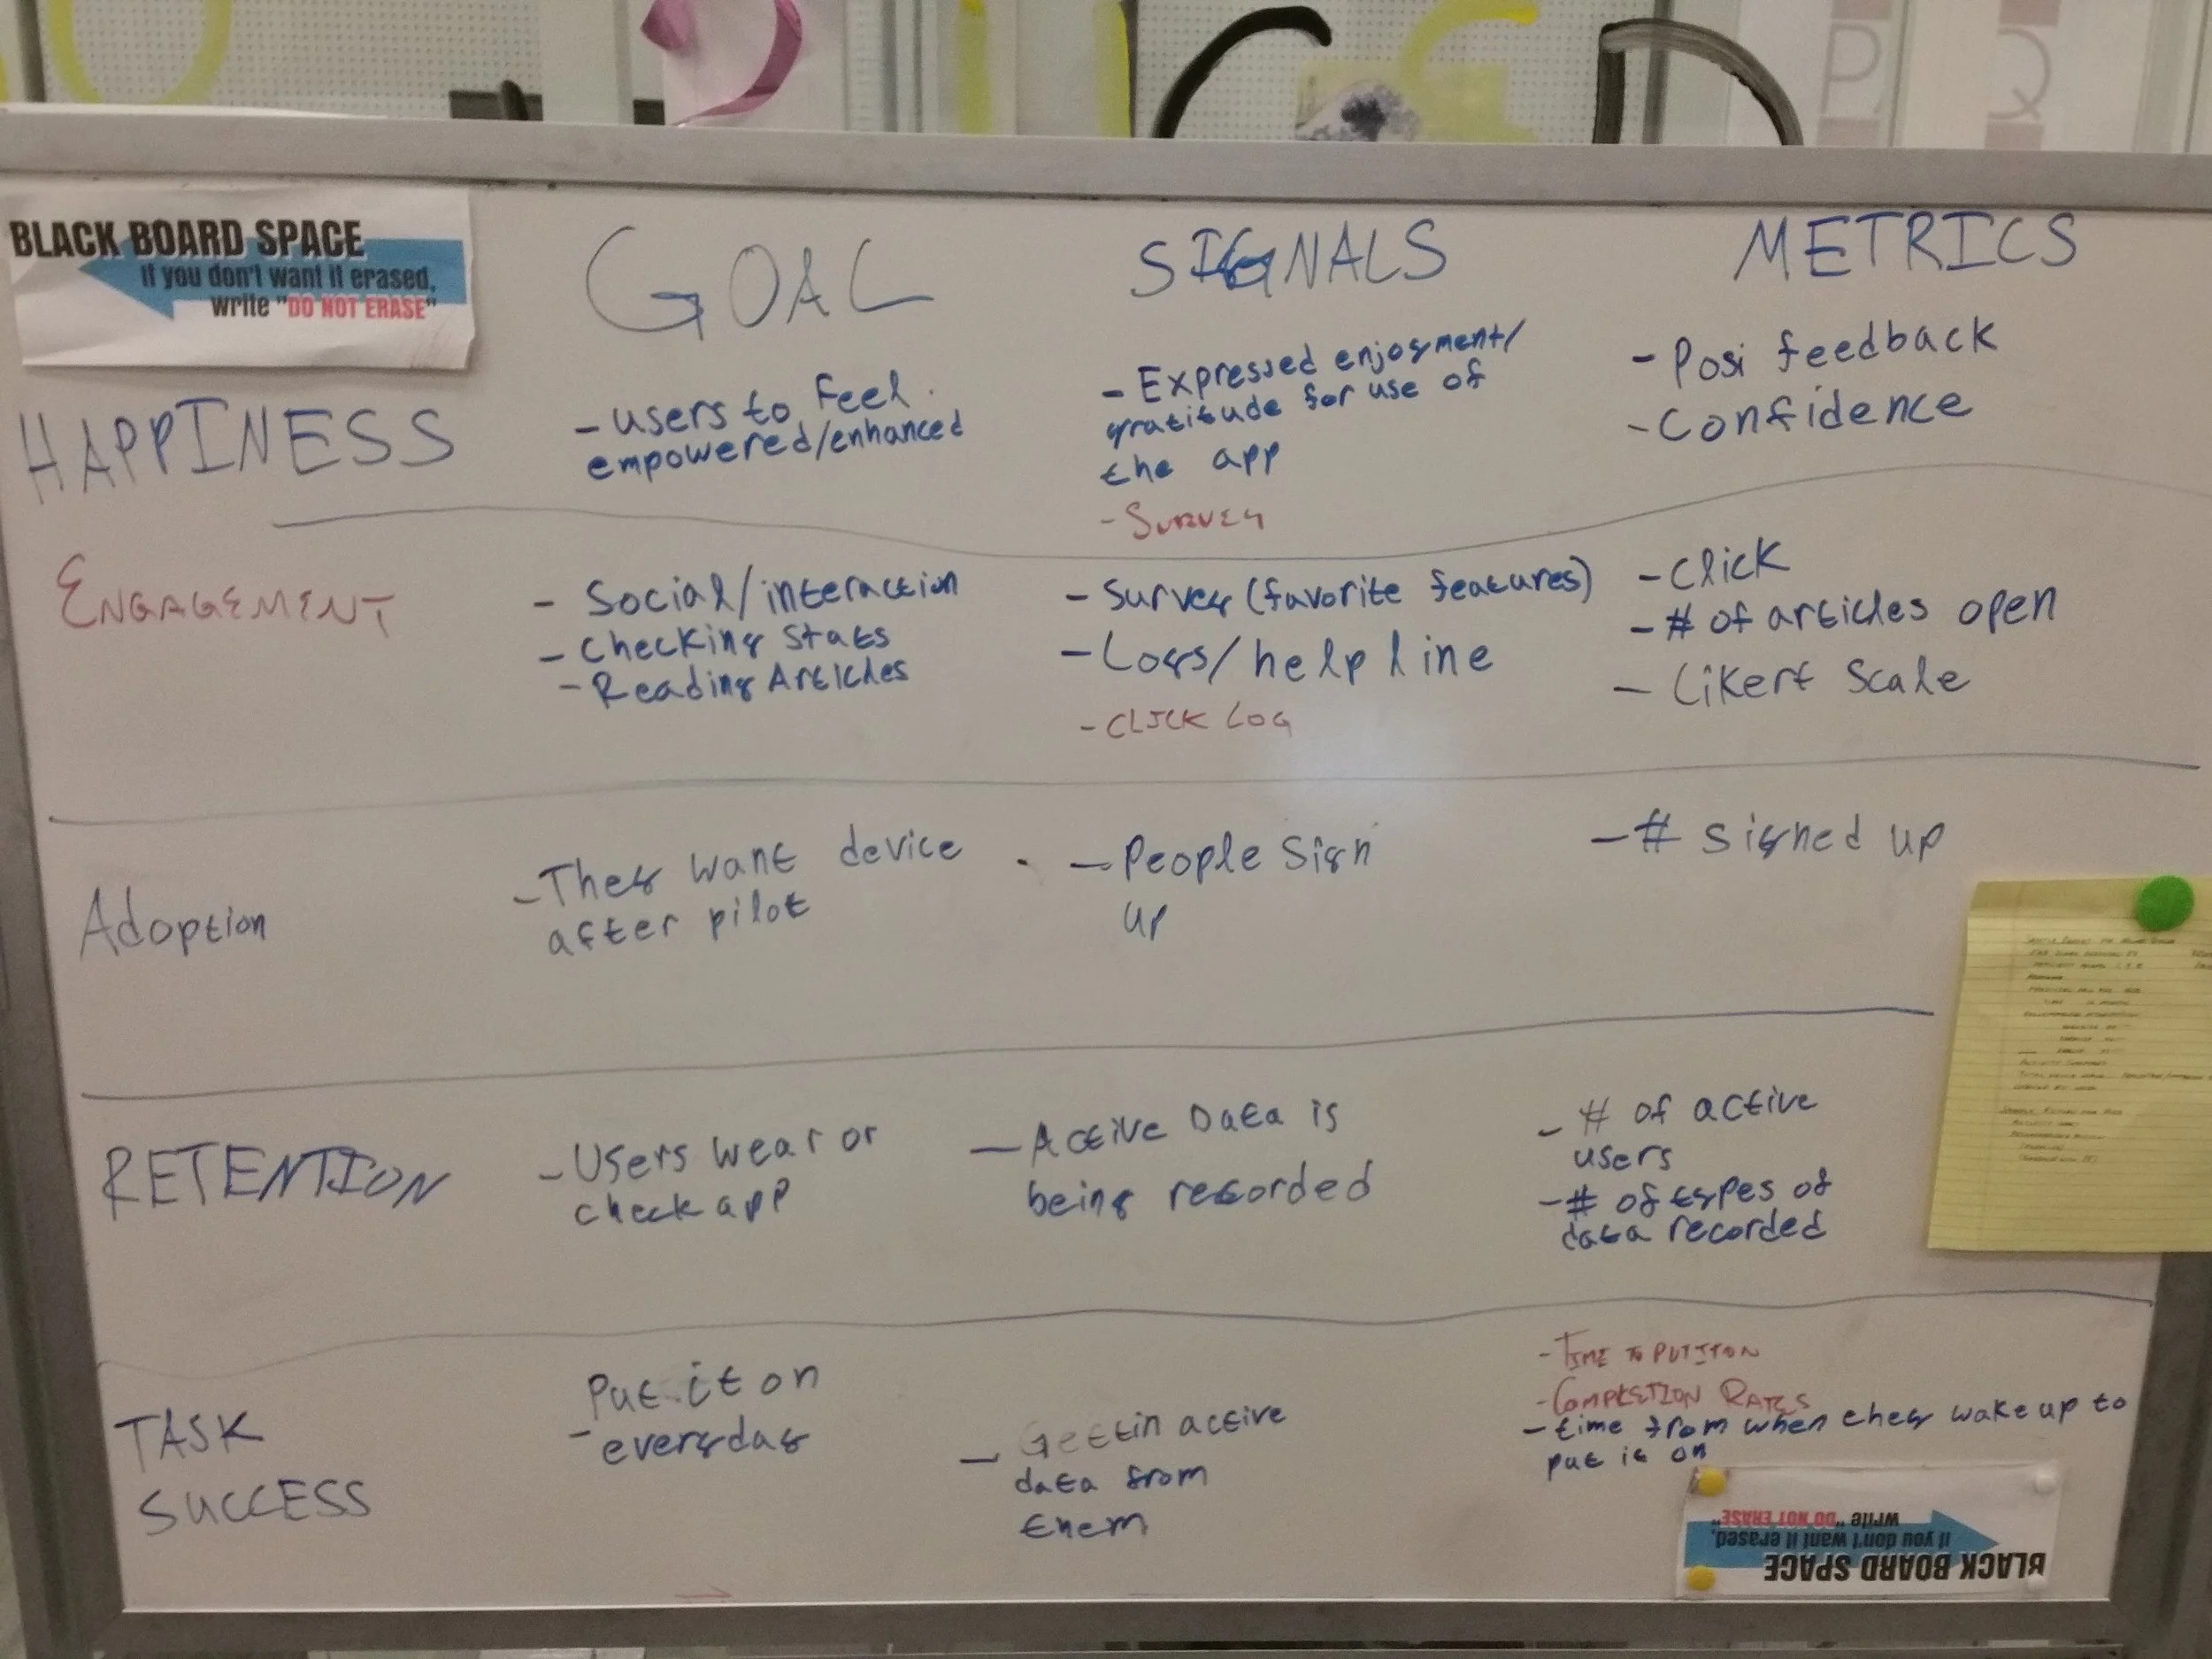 P
Q
BLACK BOARD SPACE
if you don't want it erased,
write "DO NOT ERASE"
GOAL
SIGNALS
METRICS
HAPPINESS
- Users to Feel
empowered/enhanced
- Expressed enjoyment/
gratitude for use of
the app
- SURVEY
- Posi feedback
- Confidence
ENGAGEMENT
- Social/interaction
- Checking Stats
- Reading Articles
- Survey (favorite features)
- Logs/help line
- CLICK LOG
- Click
- # of articles open
- Likert Scale
Adoption
- They want device
after pilot
- People Sign
up
- # signed up
RETENTION
- Users wear or
check app
- Active Data is
being recorded
- # of active
users
- # of types of
data recorded
TASK
SUCCESS
Put it on
- everyday
- Gettin active
data from
them
- TIME TO PUT IT ON
- COMPLETION RATES
- time from when they wake up to
put it on
BLACK BOARD SPACE
if you don't want it erased,
write "DO NOT ERASE"